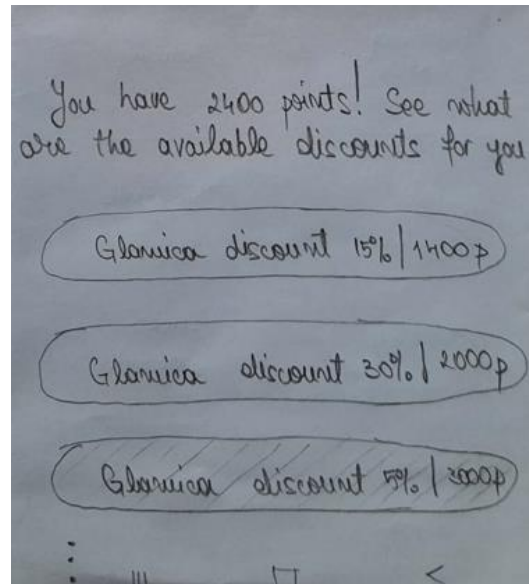 You have 2400 points! See what
are the available discounts for you
Glamica discount 15% | 1400p
Glamica discount 30% | 2000p
Glamica discount 5% | 3000p